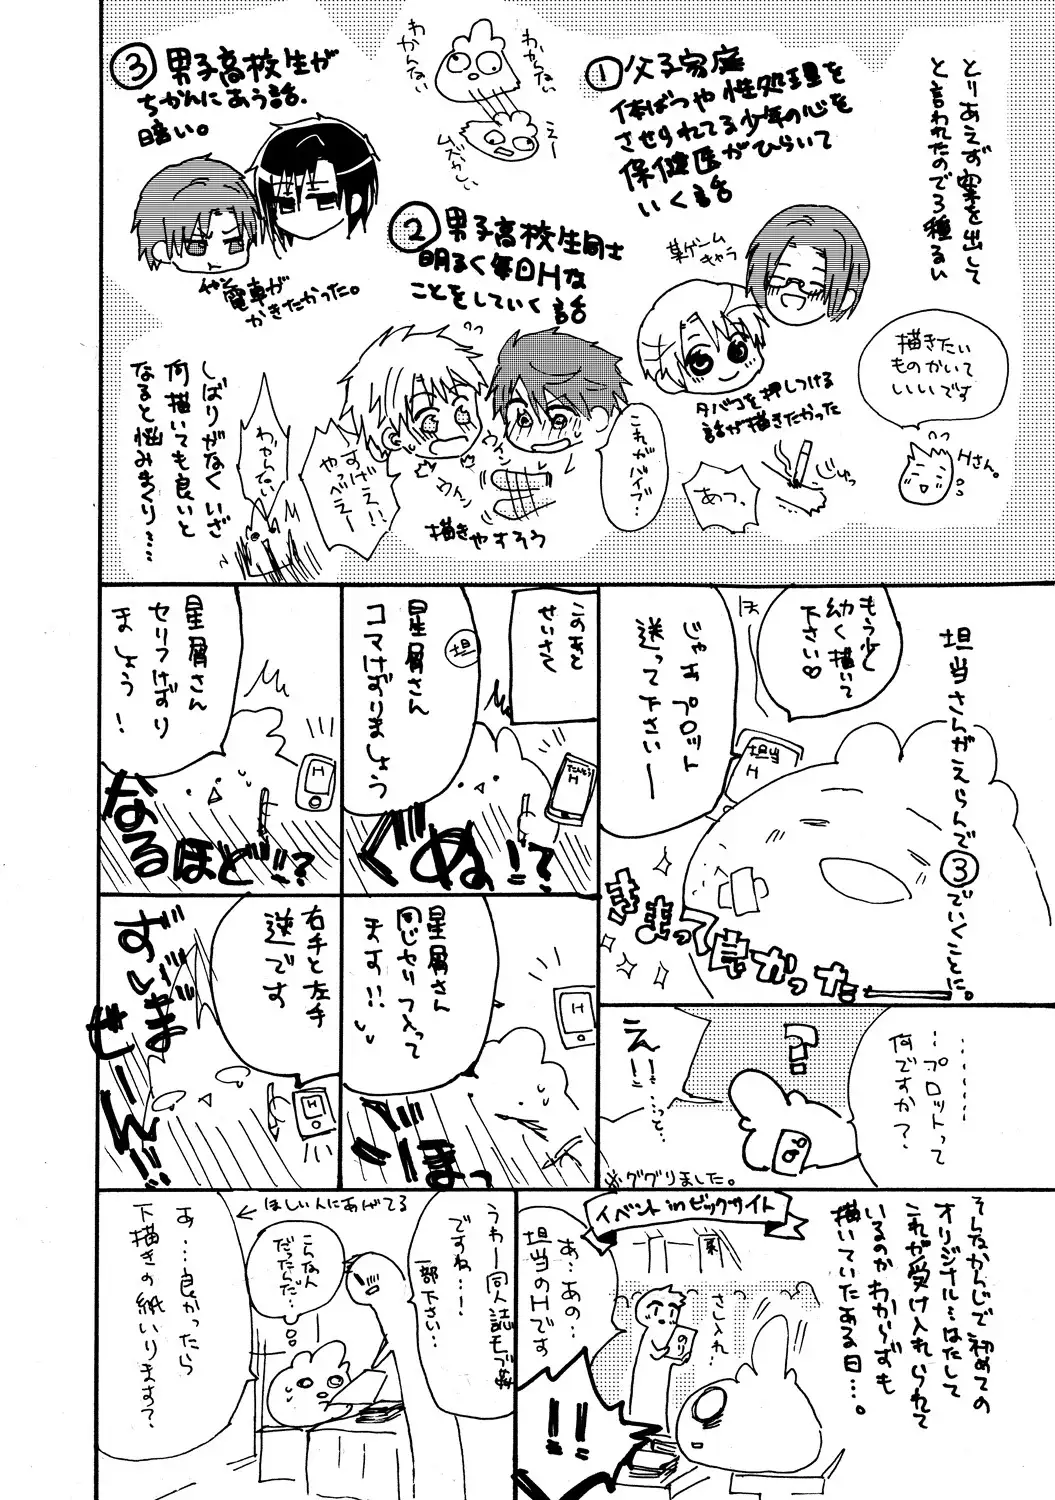 とりあえず案を出して
と言われたので3種るい
描きたい
ものかいて
いいです
Hさん。
① 父子家庭
体ばつや性処理を
させられてる少年の心を
保健医がひらいて
いく話
某ゲーム
きゃら
タバコを押しつける
話が描きたかった
じゅっ
あつ、
わからない
わかんない
えー
ムズかしい
② 男子高校生同士
明るく毎日Hな
ことをしていく話
これがバイブ…
すげえ!!
やっべえー
描きやすそう
③ 男子高校生が
ちかんにあう話。
暗い。
電車が
かきたかった。
しばりがなくいざ
何描いても良いと
なると悩みまくり……
わからない
担当さんがえらんで③でいくことに。
もう少し
幼く描いて
下さい♡
ほ
担当
H
じゃあプロット
送って下さいー
きまって良かったー
このあと
せいさく
担
星屑さん
コマけずりましょう
たんとう
H
ぐぬ!?
星屑さん
セリフけずり
ましょう!
H
なるほど!!?
………
…プロットって
何ですか?
?
えー!!…っと…
※ググりました。
星屑さん
同じセリフ入って
ます!!
H
ごほっ
右手と左手
逆です
H
ずいまぜーん!!!
そんなかんじで初めての
オリジナル…はたして
これが受け入れられて
いるのかわからずも
描いていたある日…。
イベントinビッグサイト
さし入れ…
のり
あ…あの…
担当のHです
!!
うわー同人誌
ですね…!
一部下さい…
こんな人
だったんだ…
ほしい人にあげてる
あ…良かったら
下描きの紙いります?